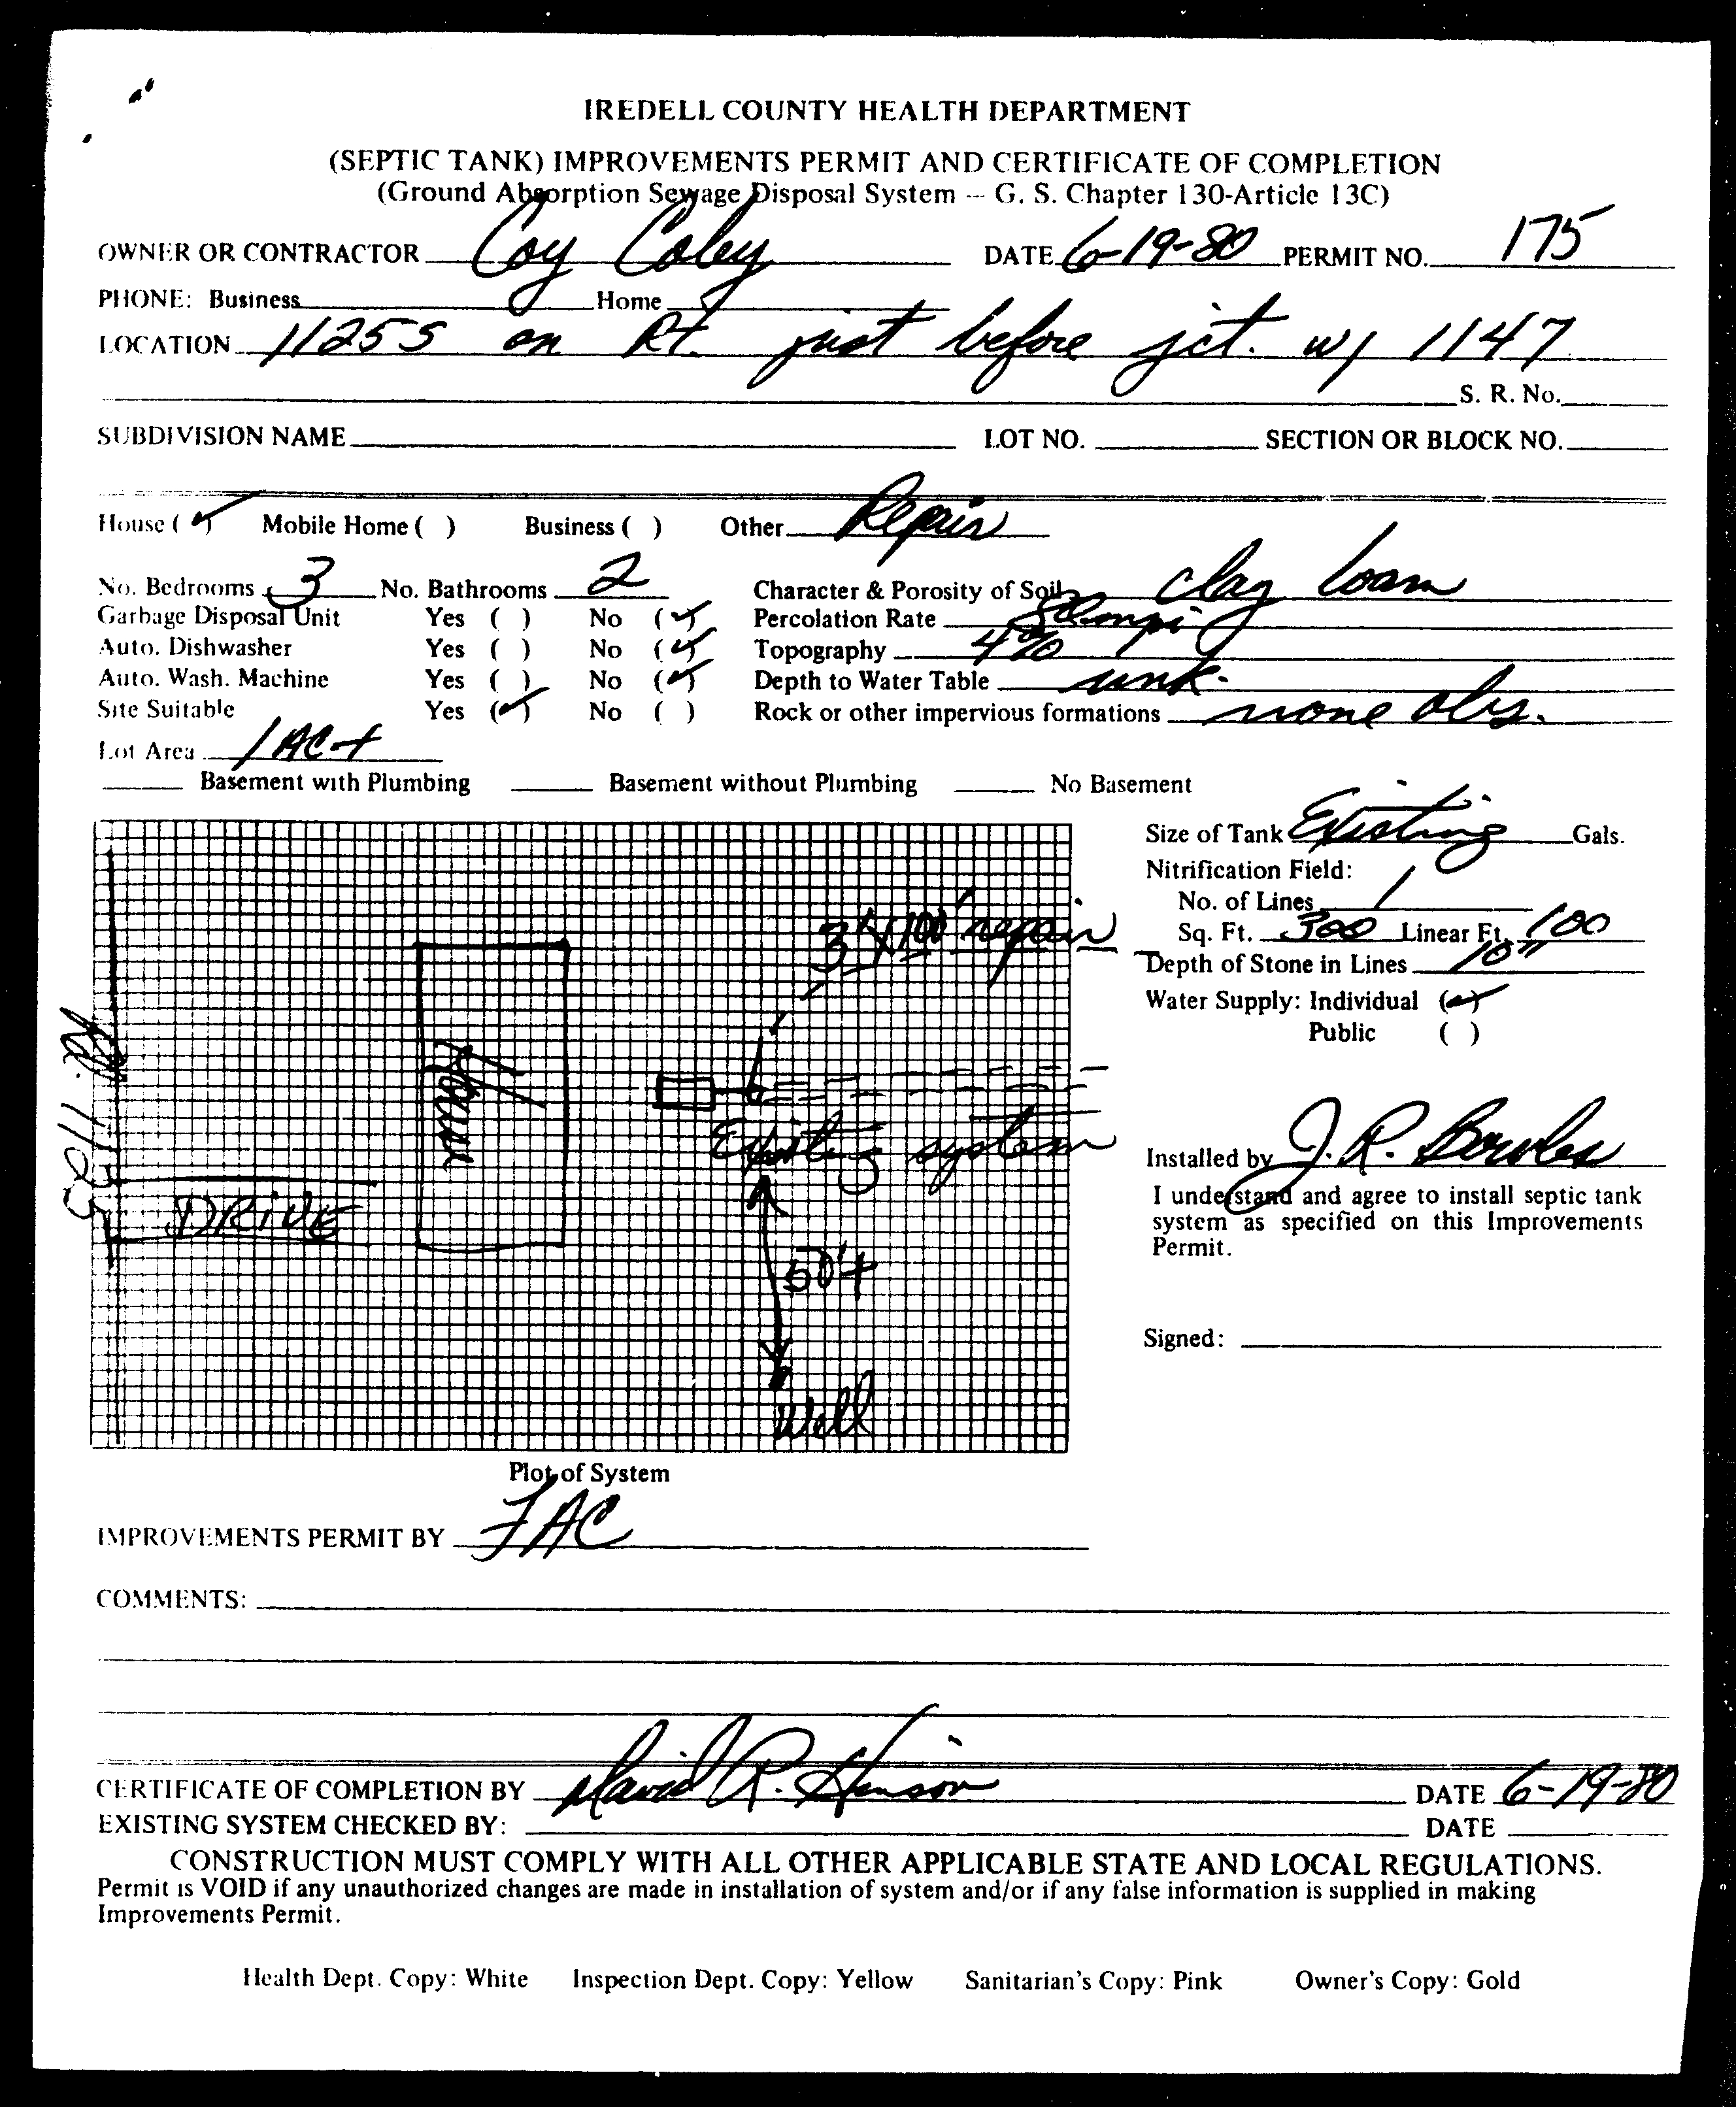 IREDELL COUNTY HEALTH DEPARTMENT
(SEPTIC TANK) IMPROVEMENTS PERMIT AND CERTIFICATE OF COMPLETION
(Ground Absorption Sewage Disposal System -- G. S. Chapter 130-Article 13C)
OWNER OR CONTRACTOR Coy Coley DATE 6-19-80 PERMIT NO. 175
PHONE: Business Home
LOCATION 1125S on Rt. just before jct. w/ 1147
S. R. No.
SUBDIVISION NAME LOT NO. SECTION OR BLOCK NO.
House (✓) Mobile Home ( ) Business ( ) Other Repair
No. Bedrooms 3 No. Bathrooms 2 Character & Porosity of Soil clay loam
Garbage Disposal Unit Yes ( ) No (✓) Percolation Rate
Auto. Dishwasher Yes ( ) No (✓) Topography 4%
Auto. Wash. Machine Yes ( ) No (✓) Depth to Water Table unk.
Site Suitable Yes (✓) No ( ) Rock or other impervious formations none obs.
Lot Area 1 AC+
Basement with Plumbing Basement without Plumbing No Basement
Size of Tank Existing Gals.
Nitrification Field:
No. of Lines 1
Sq. Ft. 300 Linear Ft. 100
Depth of Stone in Lines 10"
Water Supply: Individual (✓)
Public ( )
3'x100' repair
House
Rd. 1125
Existing system
DRIVE
50'+
Well
Installed by J. R. Bowles
I understand and agree to install septic tank
system as specified on this Improvements
Permit.
Signed:
Plot of System
IMPROVEMENTS PERMIT BY FAC
COMMENTS:
CERTIFICATE OF COMPLETION BY David R. Henson DATE 6-19-80
EXISTING SYSTEM CHECKED BY: DATE
CONSTRUCTION MUST COMPLY WITH ALL OTHER APPLICABLE STATE AND LOCAL REGULATIONS.
Permit is VOID if any unauthorized changes are made in installation of system and/or if any false information is supplied in making
Improvements Permit.
Health Dept. Copy: White Inspection Dept. Copy: Yellow Sanitarian's Copy: Pink Owner's Copy: Gold